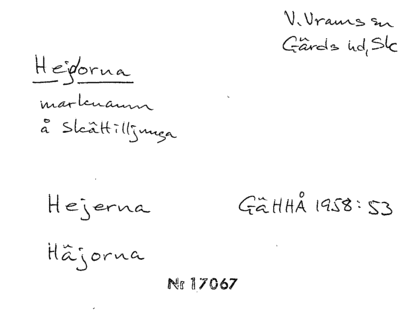 V. Vrams sn
Gärds hd, Sk
Hejorna
marknamn
å Skättilljunga
Hejerna GäHHÅ 1958:53
Häjorna
Nr 17067